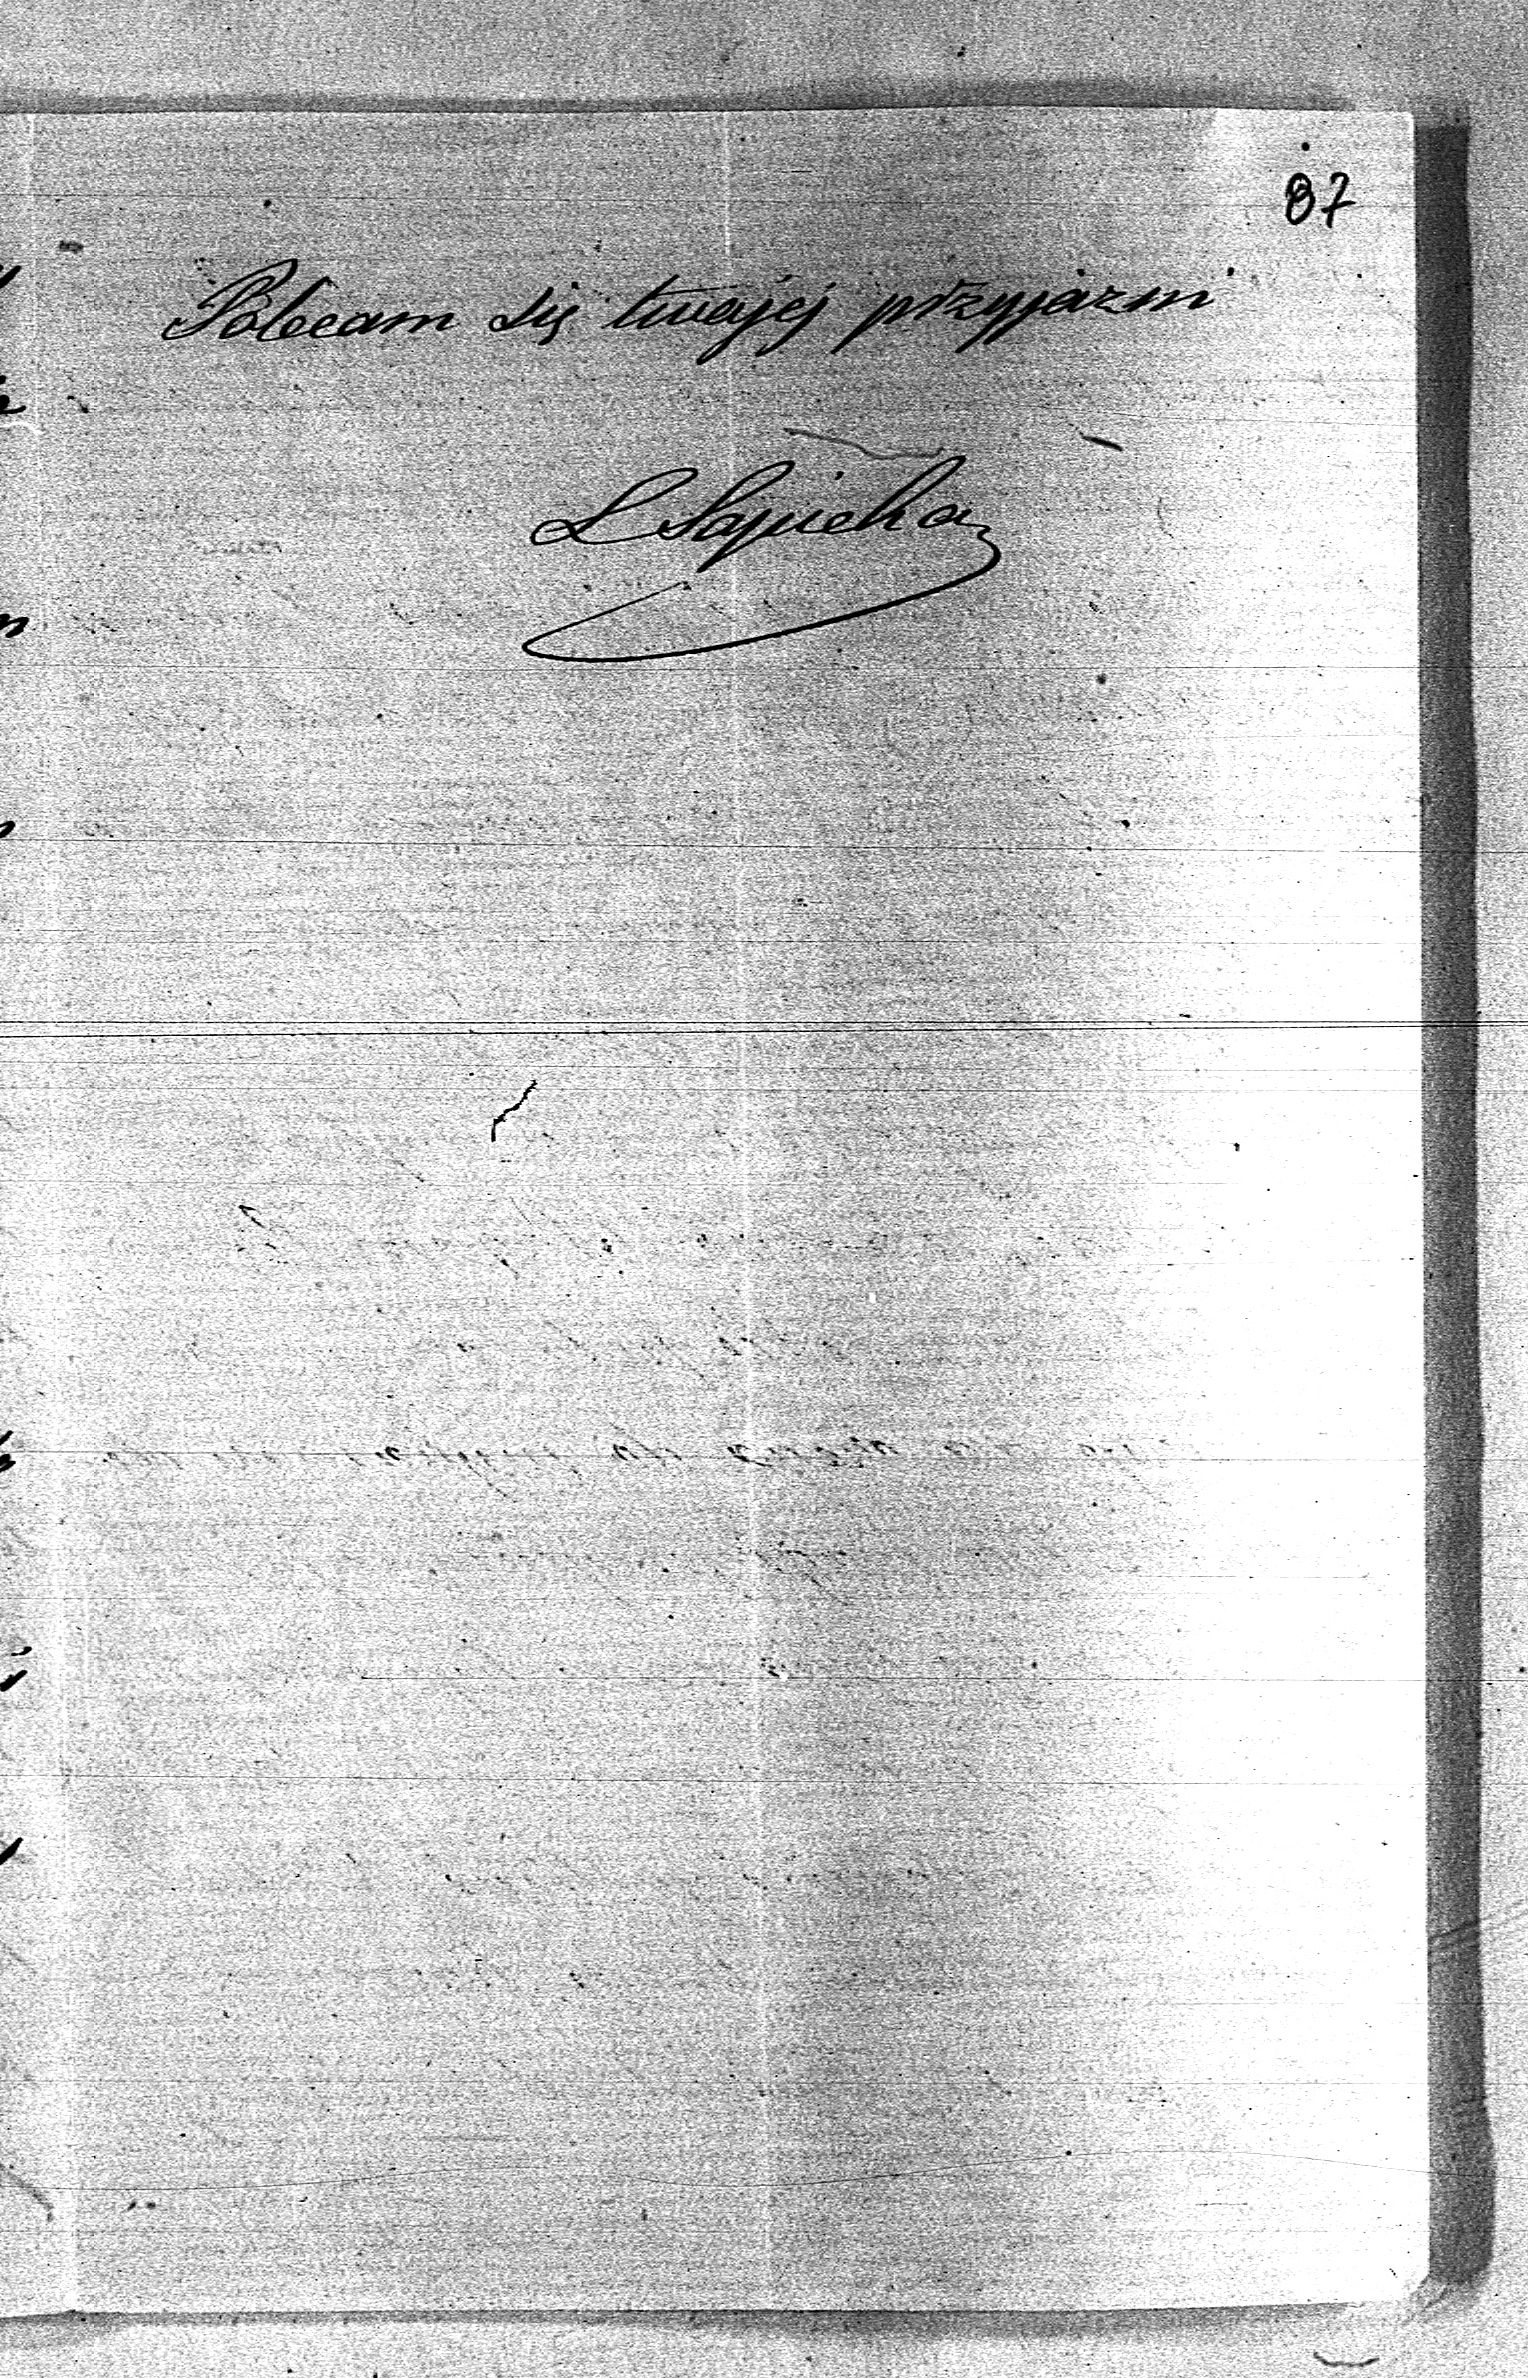 87
Polecam się twojej przyjazni
L Sapieha